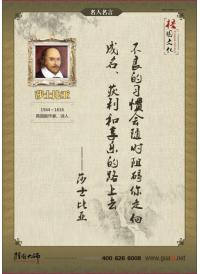 名人名言
校园文化
莎士比亚
1564～1616
英国剧作家、诗人
不良的习惯会随时阻碍你走向
成名、获利和享乐的路上去
——莎士比亚
400 626 6008